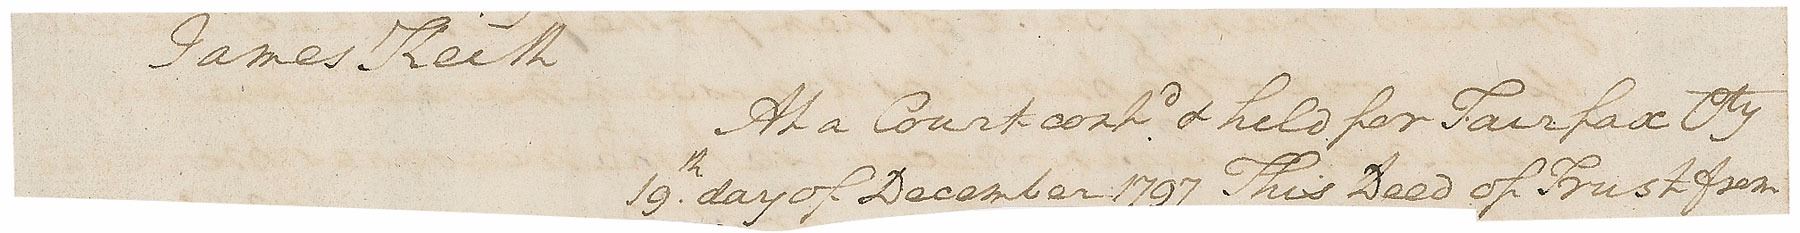 James Keith
At a Court contd & held for Fairfax Cty
19th day of December 1797 This Deed of Trust from